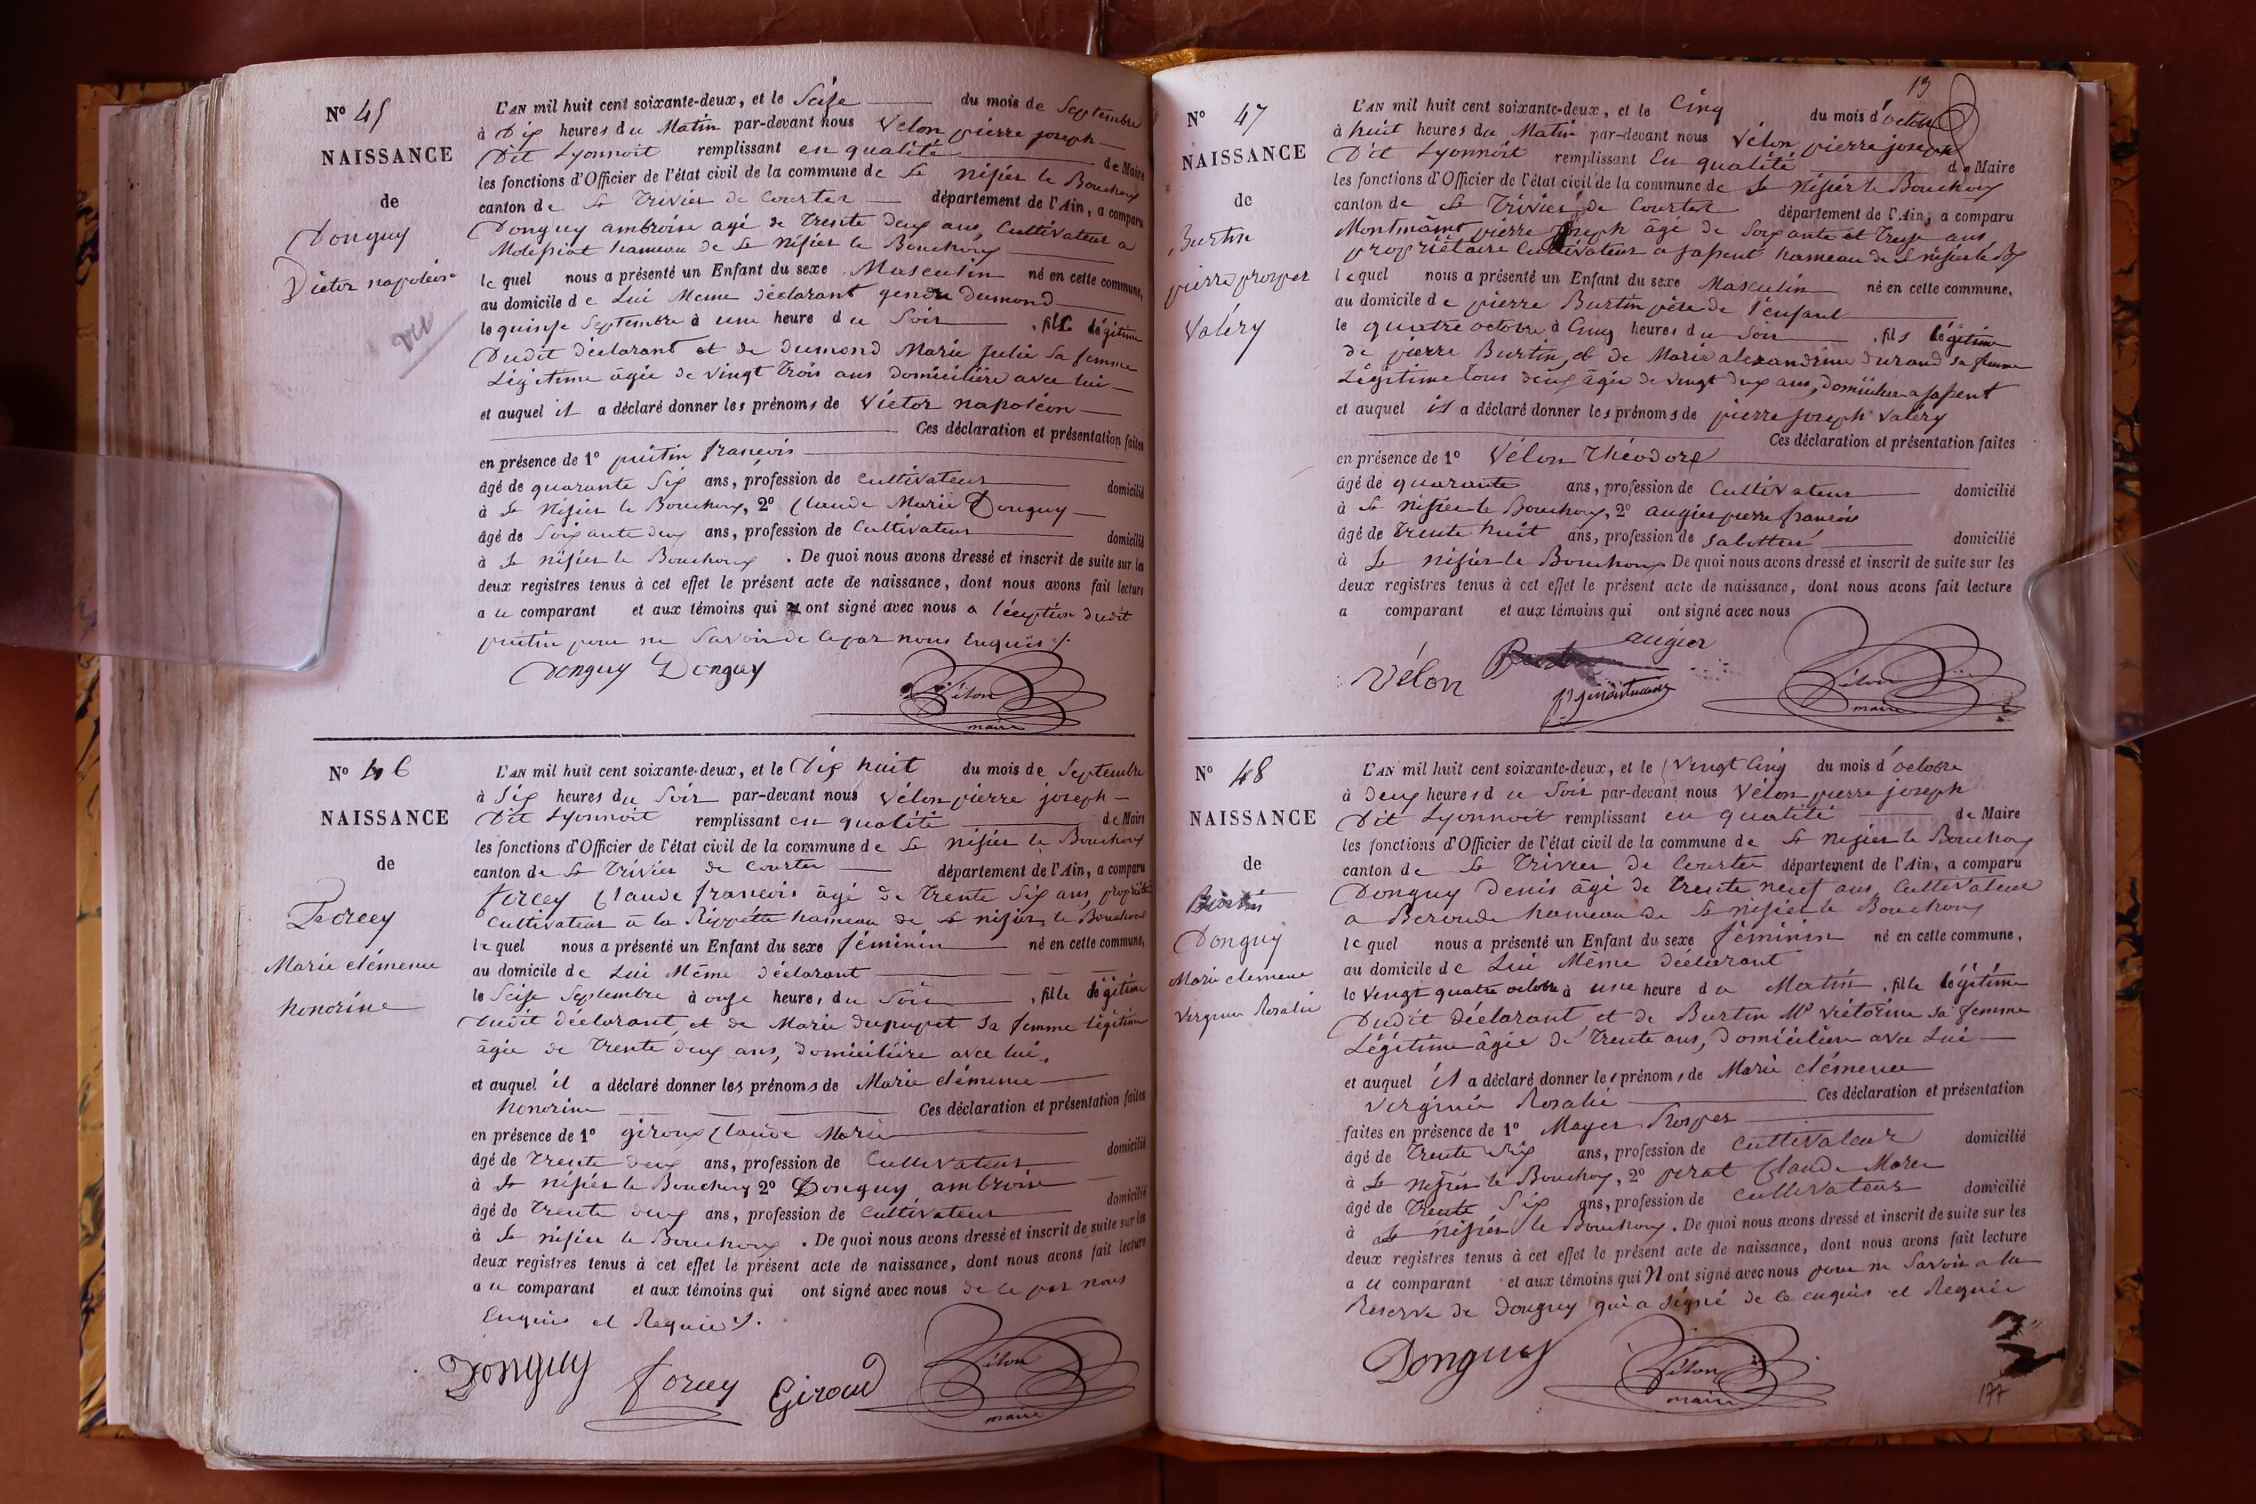 N° 45
NAISSANCE
de
Donguy
Victor napoléon
vu
L'AN mil huit cent soixante-deux, et le Seize du mois de Septembre
à Dix heures du Matin par-devant nous Vélon pierre joseph
Dit Lyonnoit remplissant en qualité de Maire
les fonctions d'Officier de l'état civil de la commune de St nisier le Bouchoux
canton de St Trivier de Courtes département de l'Ain, a comparu
Donguy ambroise agé de Trente deux ans, Cultivateur a
hameau de St nisier le Bouchoux
lequel nous a présenté un Enfant du sexe Masculin né en cette commune,
au domicile de Lui Meme déclarant gendre Dumond
le quinze Septembre à une heure du Soir , fils légitime
Dudit déclarant et de Dumond Marie Julie Sa femme
Légitime âgée de vingt Trois ans domicilière avec lui
et auquel il a déclaré donner les prénoms de Victor napoléon
Ces déclaration et présentation faites
en présence de 1° françois
âgé de quarante Six ans, profession de Cultivateur domicilié
à St Nisier le Bouchoux, 2° Claude Marie Donguy
âgé de Soixante deux ans, profession de Cultivateur domicilié
à St nisier le Bouchoux . De quoi nous avons dressé et inscrit de suite sur les
deux registres tenus à cet effet le présent acte de naissance, dont nous avons fait lecture
au comparant et aux témoins qui ont signé avec nous a léception dudit
pour ne Savoir de ce par nous Enquis ./.
Donguy Donguy
Vélon
maire
N° 46
NAISSANCE
de
Forcey
Marie clémence
honorine
L'AN mil huit cent soixante-deux, et le Dix huit du mois de Septembre
à Six heures du Soir par-devant nous Vélon pierre joseph
Dit Lyonnoit remplissant en qualité de Maire
les fonctions d'Officier de l'état civil de la commune de St nisier le Bouchoux
canton de St Trivier de Courtes département de l'Ain, a comparu
forcey Claude françois âgé de Trente Six ans, propriétaire
Cultivateur à la Rippette hameau de St nisier le Bouchoux
lequel nous a présenté un Enfant du sexe féminin né en cette commune,
au domicile de Lui Même déclarant
le Seize Septembre à onze heures du Soir , fille légitime
Dudit déclarant et de Marie dupuget Sa femme Légitime
âgée de Trente deux ans, domicilière avec lui.
et auquel il a déclaré donner les prénoms de Marie clémence
honorine Ces déclaration et présentation faites
en présence de 1° giroux Claude Marie
âgé de Trente deux ans, profession de Cultivateur domicilié
à St nisier le Bouchoux 2° Donguy ambroise
âgé de Trente deux ans, profession de Cultivateur domicilié
à St nisier le Bouchoux . De quoi nous avons dressé et inscrit de suite sur les
deux registres tenus à cet effet le présent acte de naissance, dont nous avons fait lecture
au comparant et aux témoins qui ont signé avec nous de ce par nous
Enquis et Requis ./.
Donguy forcey Giroud
Vélon
maire
13
N° 47
NAISSANCE
de
Burtin
pierre prosper
Valéry
L'AN mil huit cent soixante-deux, et le Cinq du mois d'octobre
à huit heures du Matin par-devant nous Vélon pierre joseph
Dit Lyonnoit remplissant En qualité de Maire
les fonctions d'Officier de l'état civil de la commune de St Nisier le Bouchoux
canton de St Trivier de Courtes département de l'Ain, a comparu
pierre joseph âgé de Soixante et Treize ans
propriétaire Cultivateur a hameau de St nisier le Bx
lequel nous a présenté un Enfant du sexe Masculin né en cette commune,
au domicile de pierre Burtin père de l'enfant
le quatre octobre à Cinq heures du Soir , fils légitime
de pierre Burtin et de Marie alexandrine durand sa femme
Légitime tous deux âgés de vingt deux ans, Domiciliers a
et auquel il a déclaré donner les prénoms de pierre joseph Valéry
Ces déclaration et présentation faites
en présence de 1° Vélon Théodore
âgé de quarante ans, profession de Cultivateur domicilié
à St nisier le Bouchoux, 2° augier pierre françois
âgé de Trente huit ans, profession de Sabottier domicilié
à St nisier le Bouchoux De quoi nous avons dressé et inscrit de suite sur les
deux registres tenus à cet effet le présent acte de naissance, dont nous avons fait lecture
a comparant et aux témoins qui ont signé avec nous
augier
Vélon
Vélon
maire
N° 48
NAISSANCE
de
Donguy
Marie clémence
Virginie Rosalie
L'AN mil huit cent soixante-deux, et le Vingt Cinq du mois d'octobre
à Deux heures du Soir par-devant nous Vélon pierre joseph
Dit Lyonnoit remplissant en qualité de Maire
les fonctions d'Officier de l'état civil de la commune de St nisier le Bouchoux
canton de St Trivier de Courtes département de l'Ain, a comparu
Donguy Denis âgé de Trente neuf ans Cultivateur
a Beroude hameau de St nisier le Bouchoux
lequel nous a présenté un Enfant du sexe féminin né en cette commune,
au domicile de Lui Même déclarant
le Vingt quatre octobre à une heure du Matin , fille légitime
Dudit déclarant et de Burtin Mie Victorine sa femme
Légitime âgée de Trente ans, Domicilière avec Lui
et auquel il a déclaré donner les prénoms de Marie clémence
Virginie Rosalie Ces déclaration et présentation
faites en présence de 1° Mayer Prosper
âgé de Trente Six ans, profession de Cultivateur domicilié
à St nisier le Bouchoux, 2° perat Claude Marie
âgé de Trente Six ans, profession de Cultivateur domicilié
à St nisier le Bouchoux . De quoi nous avons dressé et inscrit de suite sur les
deux registres tenus à cet effet le présent acte de naissance, dont nous avons fait lecture
au comparant et aux témoins qui N ont signé avec nous pour ne Savoir a la
Réserve de Donguy qui a Signé de ce enquis et Requis
Donguy
Vélon
maire
177